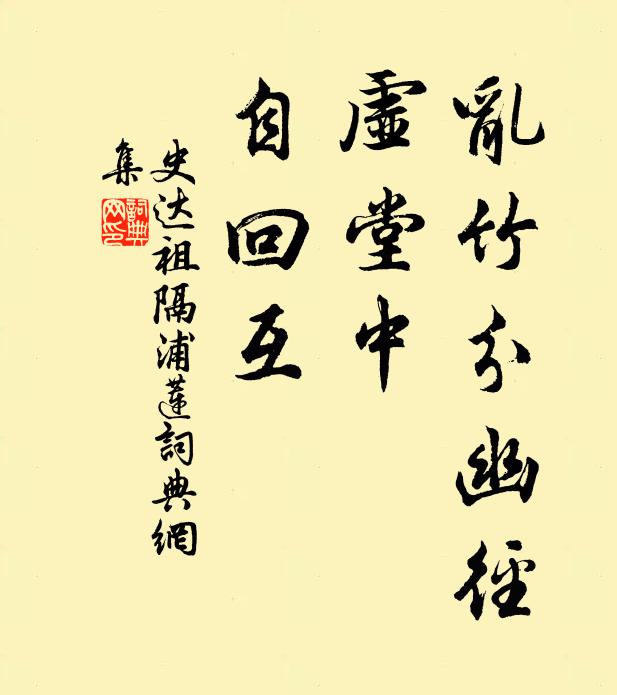 亂竹分幽徑
虛堂中
自回互
史达祖隔浦蓮詞典網
集
詞典
网印